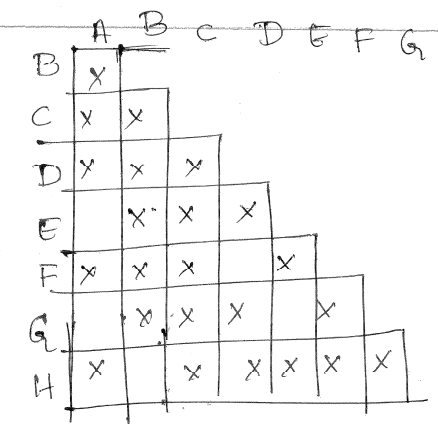 A B C D E F G
B X
C X X
D X X X
E X X X
F X X X X
G X X X X
H X X X X X X